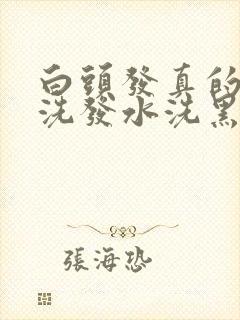 白頭發真的
洗發水洗黑
張海恐